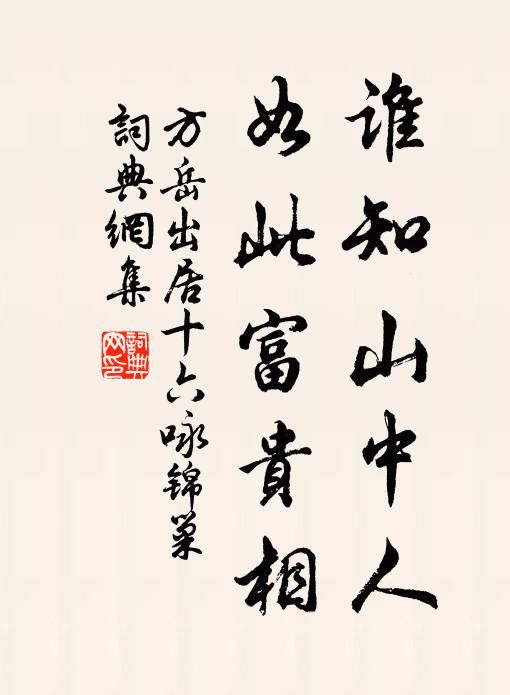 誰知山中人
如此富貴相
方岳出居十六咏錦巢
詞典網集
詞典網印